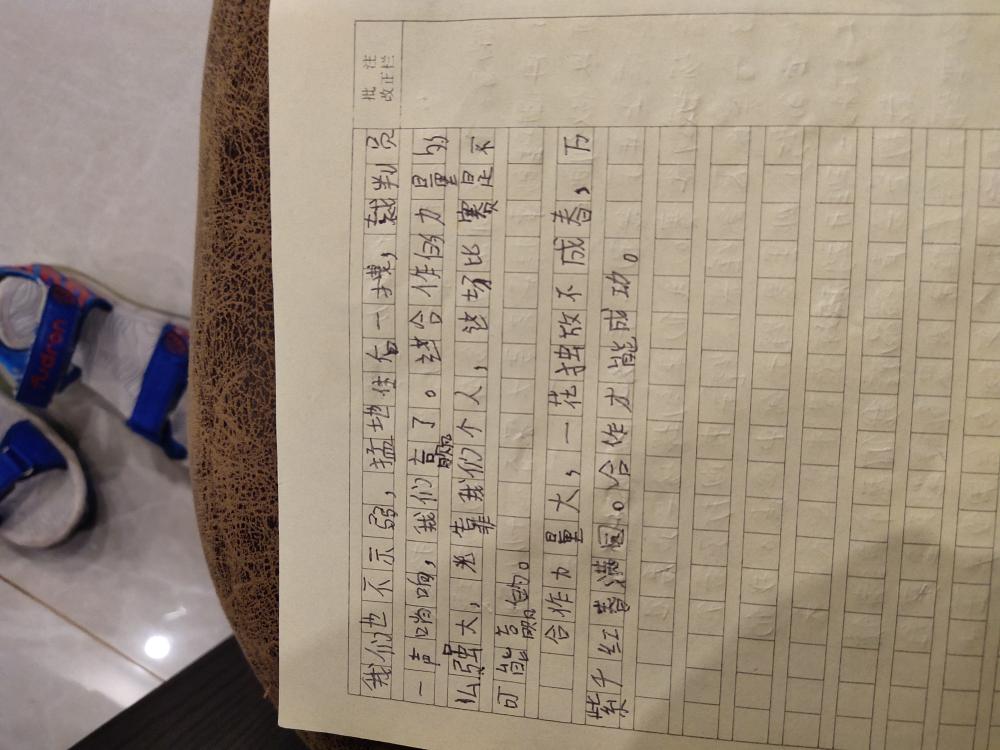 批注
改正栏
我们也不示弱，猛地往后一拽，裁判员
一声哨响，我们赢了。这合作的力量多
么强大，光靠我们个人，这场比赛是不
可能赢的。
合作力量大，一花独放不成春，万
紫千红春满园。合作才能成功。